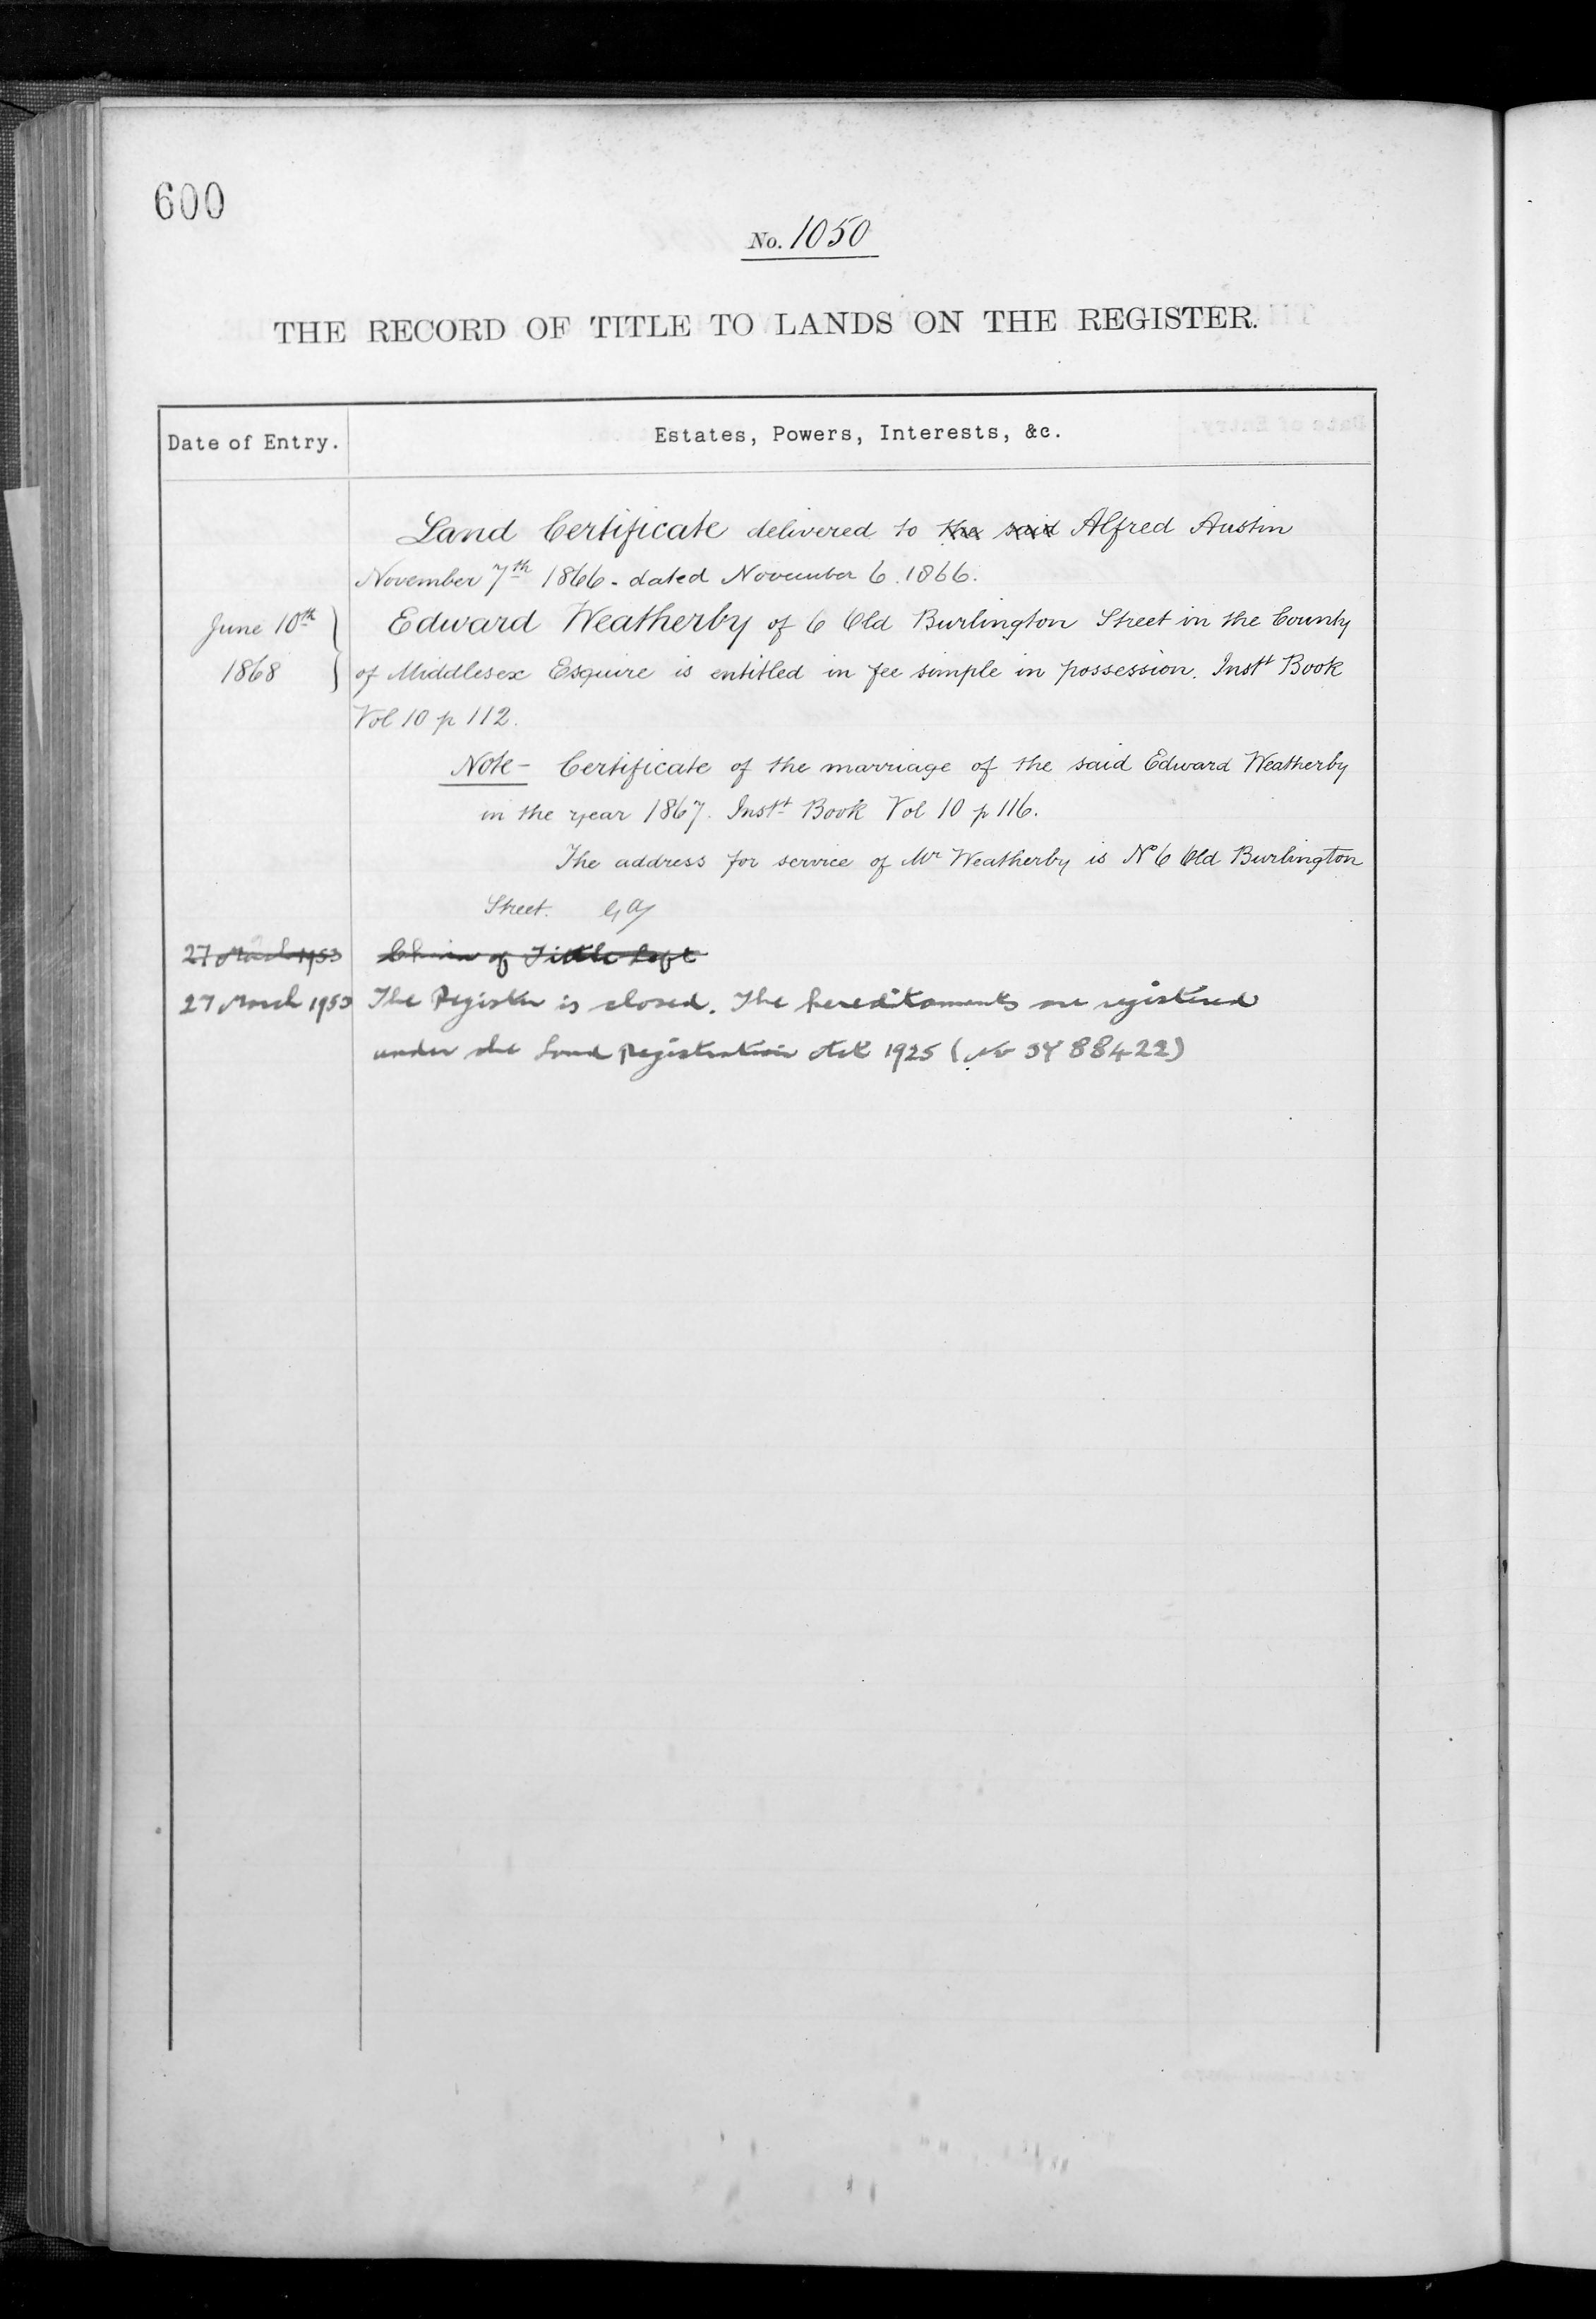 600
No. 1050
THE RECORD OF TITLE TO LANDS ON THE REGISTER.
Date of Entry.
Estates, Powers, Interests, &c.
Land Certificate delivered to the said Alfred Austin
November 7th 1866 - dated November 6. 1866.
June 10th
1868
Edward Weatherby of 6 Old Burlington Street in the County
of Middlesex Esquire is entitled in fee simple in possession. Instt Book
Vol 10 p 112.
Note - Certificate of the marriage of the said Edward Weatherby
in the year 1867. Instt Book Vol 10 p 116.
The address for service of Mr Weatherby is No 6 Old Burlington
Street.
27 March 1953 of Title
27 March 1953 The Register is closed. The hereditaments are registered
under the Land Registration Act 1925 (No SY 88422)